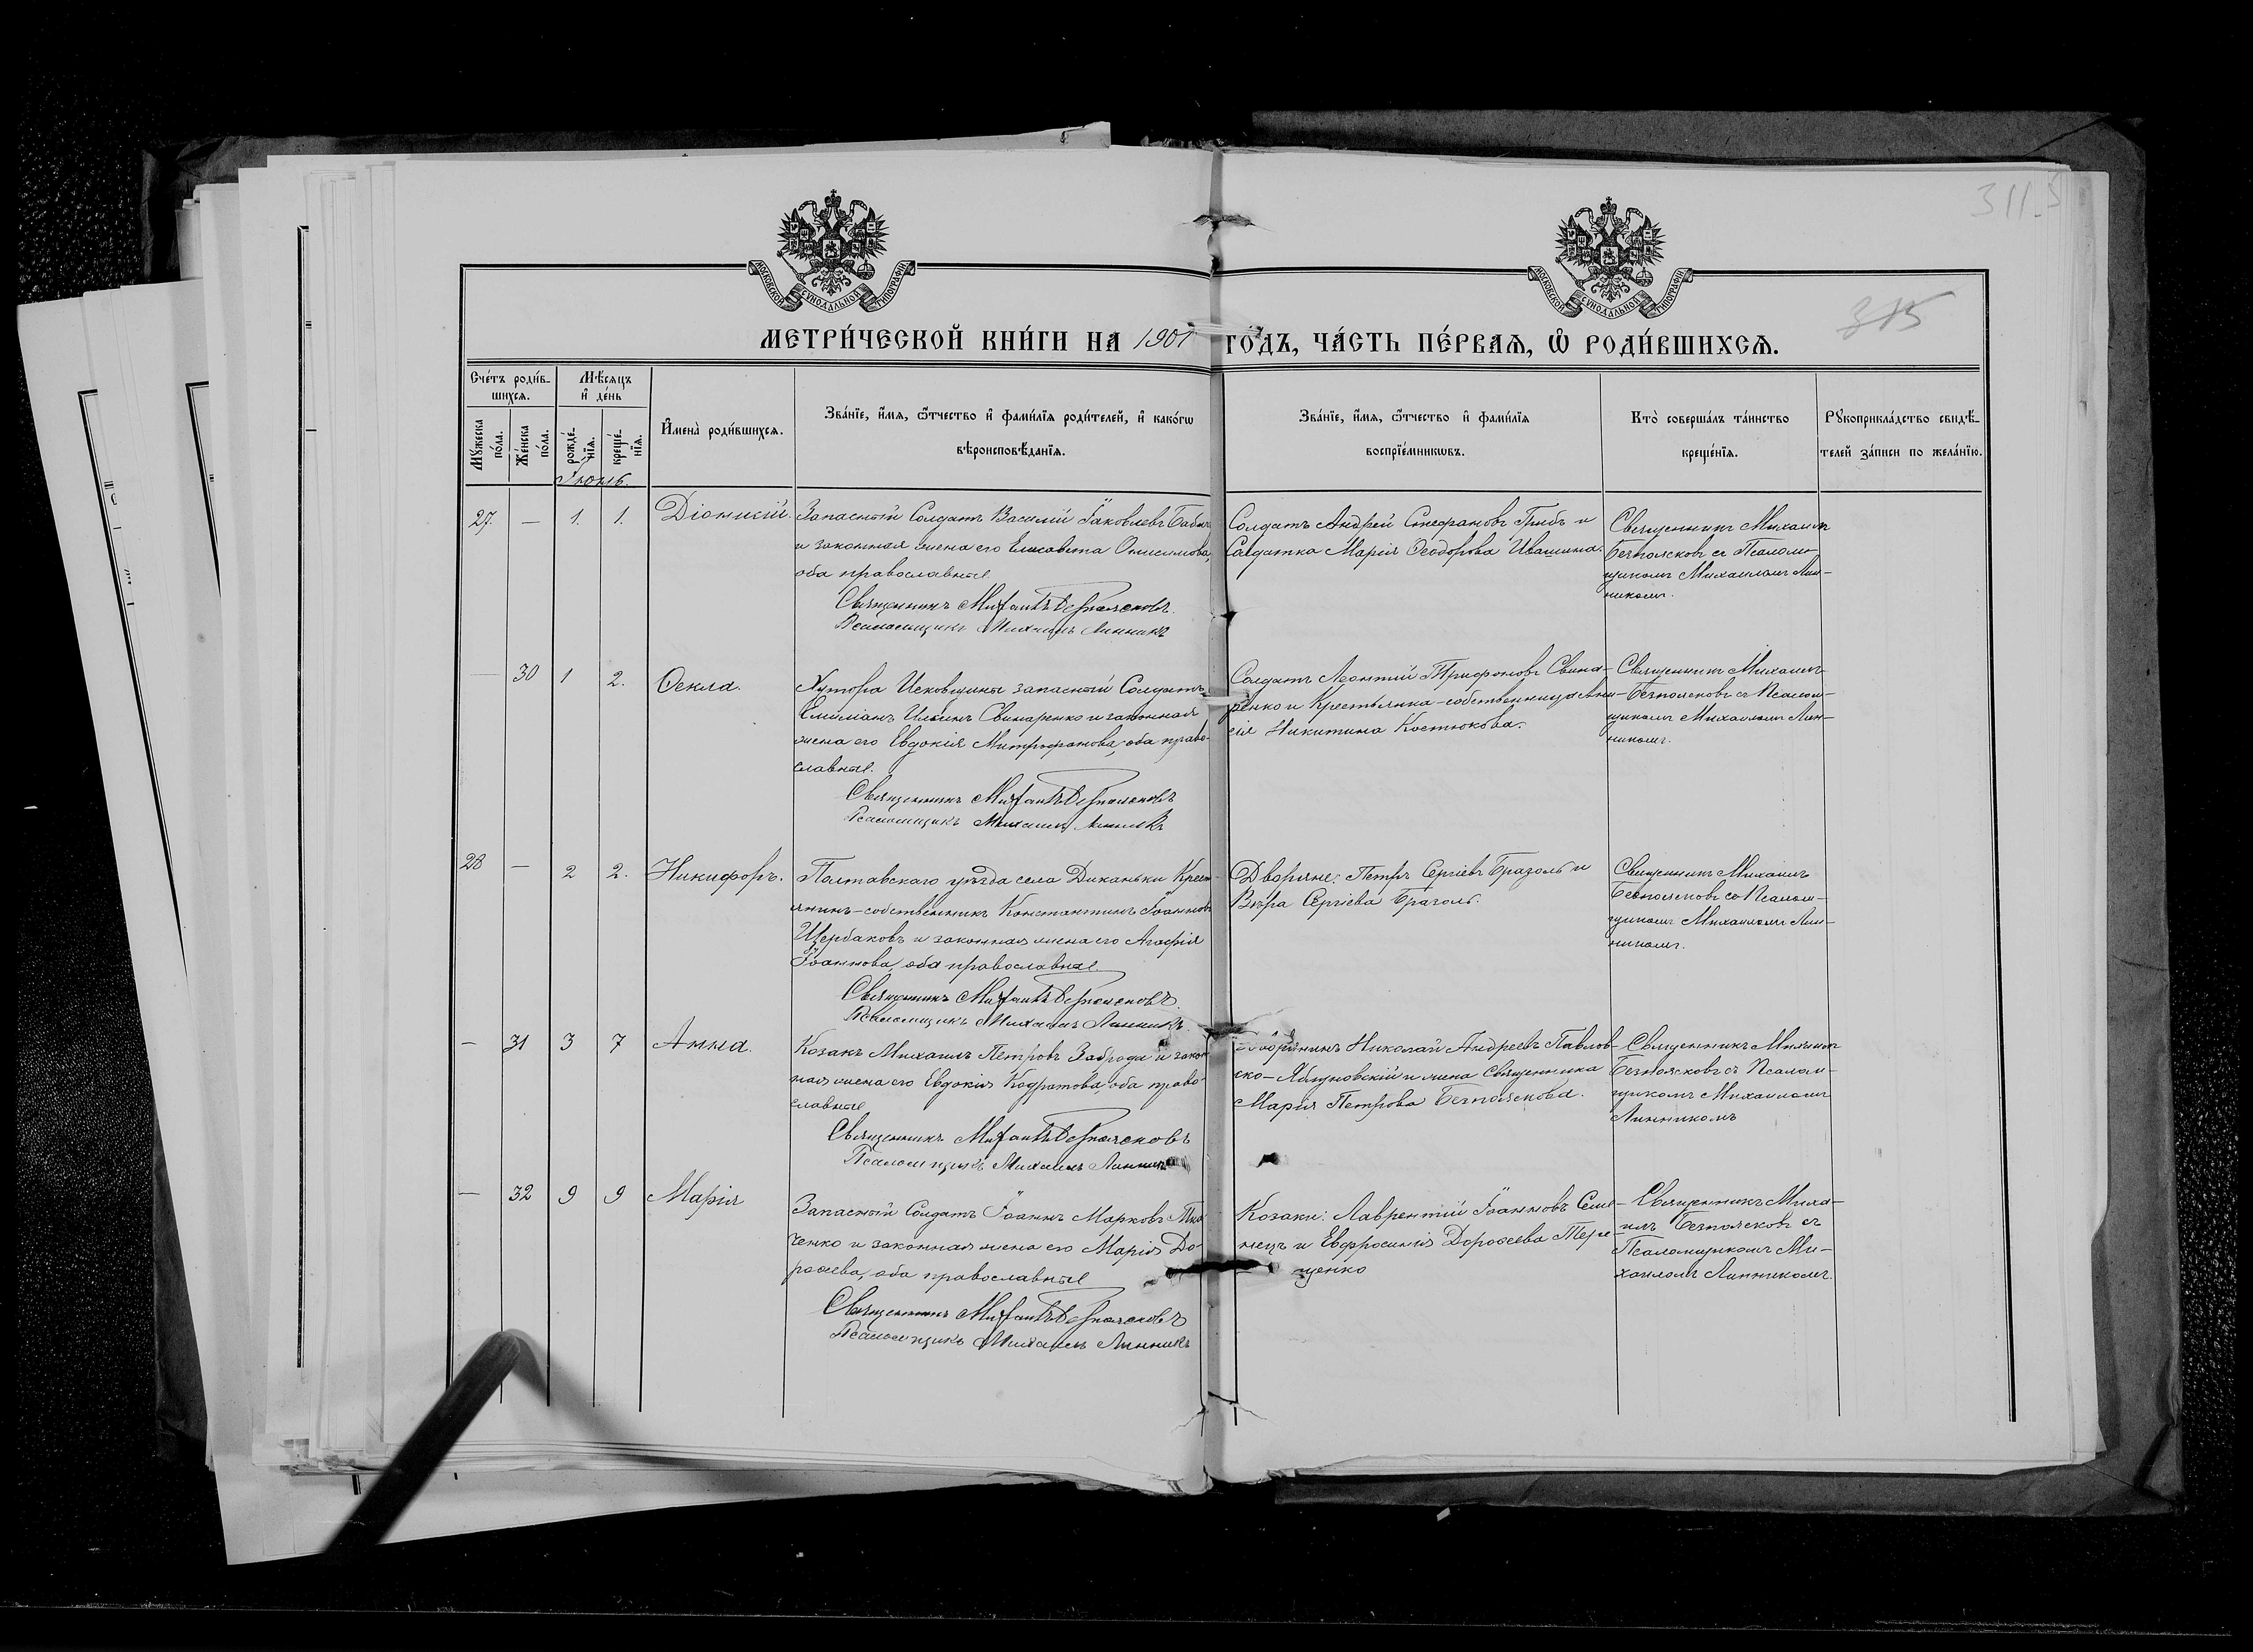 311.5
315
МОСКОВСКОЙ СѴНОДАЛЬНОЙ ТИПОГРАФІИ
МОСКОВСКОЙ СѴНОДАЛЬНОЙ ТИПОГРАФІИ
МЕТРИ́ЧЕСКОЙ КНИ́ГИ НА 1901 ГО́ДЪ, ЧА́СТЬ ПЕ́РВАѦ, Ѽ РОДИ́ВШИХСѦ.
Сче́тъ роди́в-
шихсѧ.
Мѣ́сѧцъ
и҆ де́нь
Мꙋ́жеска
по́ла.
Же́нска
по́ла.
рожде́-
нїѧ.
креще́-
нїѧ.
И҆мена̀ роди́вшихсѧ.
Зва́нїе, и҆́мѧ, ѻ҆́тчество и҆ фами́лїѧ роди́телей, и҆ како́гѡ
вѣроисповѣ́данїѧ.
Зва́нїе, и҆́мѧ, ѻ҆́тчество и҆ фами́лїѧ
воспрїе́мникѡвъ.
Кто̀ соверша́лъ та́инство
креще́нїѧ.
Рꙋкоприкла́дство свидѣ́-
телей за́писи по жела́нїю.
Іюль.
27. — 1. 1. Діонисій.
Запасный Солдатъ Василій Іаковлевъ
и законная жена его Елисавета Онисимова,
оба православные.
Священникъ Михаилъ Безпоясковъ.
Псаломщикъ Михаилъ Линникъ
Солдатъ Андрей Стефановъ Грибъ и
Солдатка Марія Ѳеодорова Ивашина.
Священникъ Михаилъ
Безпоясковъ съ Псалом-
щикомъ Михаиломъ Лин-
никомъ.
— 30 1 2. Ѳекла.
Хутора Исковщины запасный Солдатъ
Емиліанъ Иліинъ Свинаренко и законная
жена его Евдокія Митрофанова, оба право-
славные.
Священникъ Михаилъ Безпоясковъ
Псаломщикъ Михаилъ Линникъ
Солдатъ Леонтій Трифоновъ Свина-
ренко и Крестьянка-собственница Ани-
сія Никитина Костюкова.
Священникъ Михаилъ
Безпоясковъ съ Псалом-
щикомъ Михаиломъ Лин-
никомъ.
28 — 2 2. Никифоръ.
Полтавскаго уѣзда села Диканьки Крест-
янинъ-собственникъ Константинъ Іоанновъ
Щербаковъ и законная жена его Агафія
Іоаннова, оба православные.
Священникъ Михаилъ Безпоясковъ.
Псаломщикъ Михаилъ Линникъ.
Дворяне: Петръ Сергіевъ Бразоль и
Вѣра Сергіева Бразоль.
Священникъ Михаилъ
Безпоясковъ со Псалом-
щикомъ Михаиломъ Лин-
никомъ.
— 31 3 7 Анна.
Козакъ Михаилъ Петровъ Заброда и закон-
ная жена его Евдокія Кодратова, оба право-
славные
Священникъ Михаилъ Безпоясковъ
Псаломщикъ Михаилъ Линникъ
Дворянинъ Николай Андреевъ Павлов-
ско-Яблуновскій и жена Священника
Марія Петрова Безпояскова.
Священникъ Михаилъ
Безпоясковъ съ Псалом-
щикомъ Михаиломъ
Линникомъ
— 32 9 9 Марія
Запасный Солдатъ Іоаннъ Марковъ
ченко и законная жена его Марія До-
роѳеева, оба православные
Священникъ Михаилъ Безпоясковъ
Псаломщикъ Михаилъ Линникъ
Козаки: Лаврентій Іоанновъ Семе-
нецъ и Евфросинія Дороѳеева Тере-
щенко
Священникъ Миха-
илъ Безпоясковъ съ
Псаломщикомъ Ми-
хаиломъ Линникомъ.